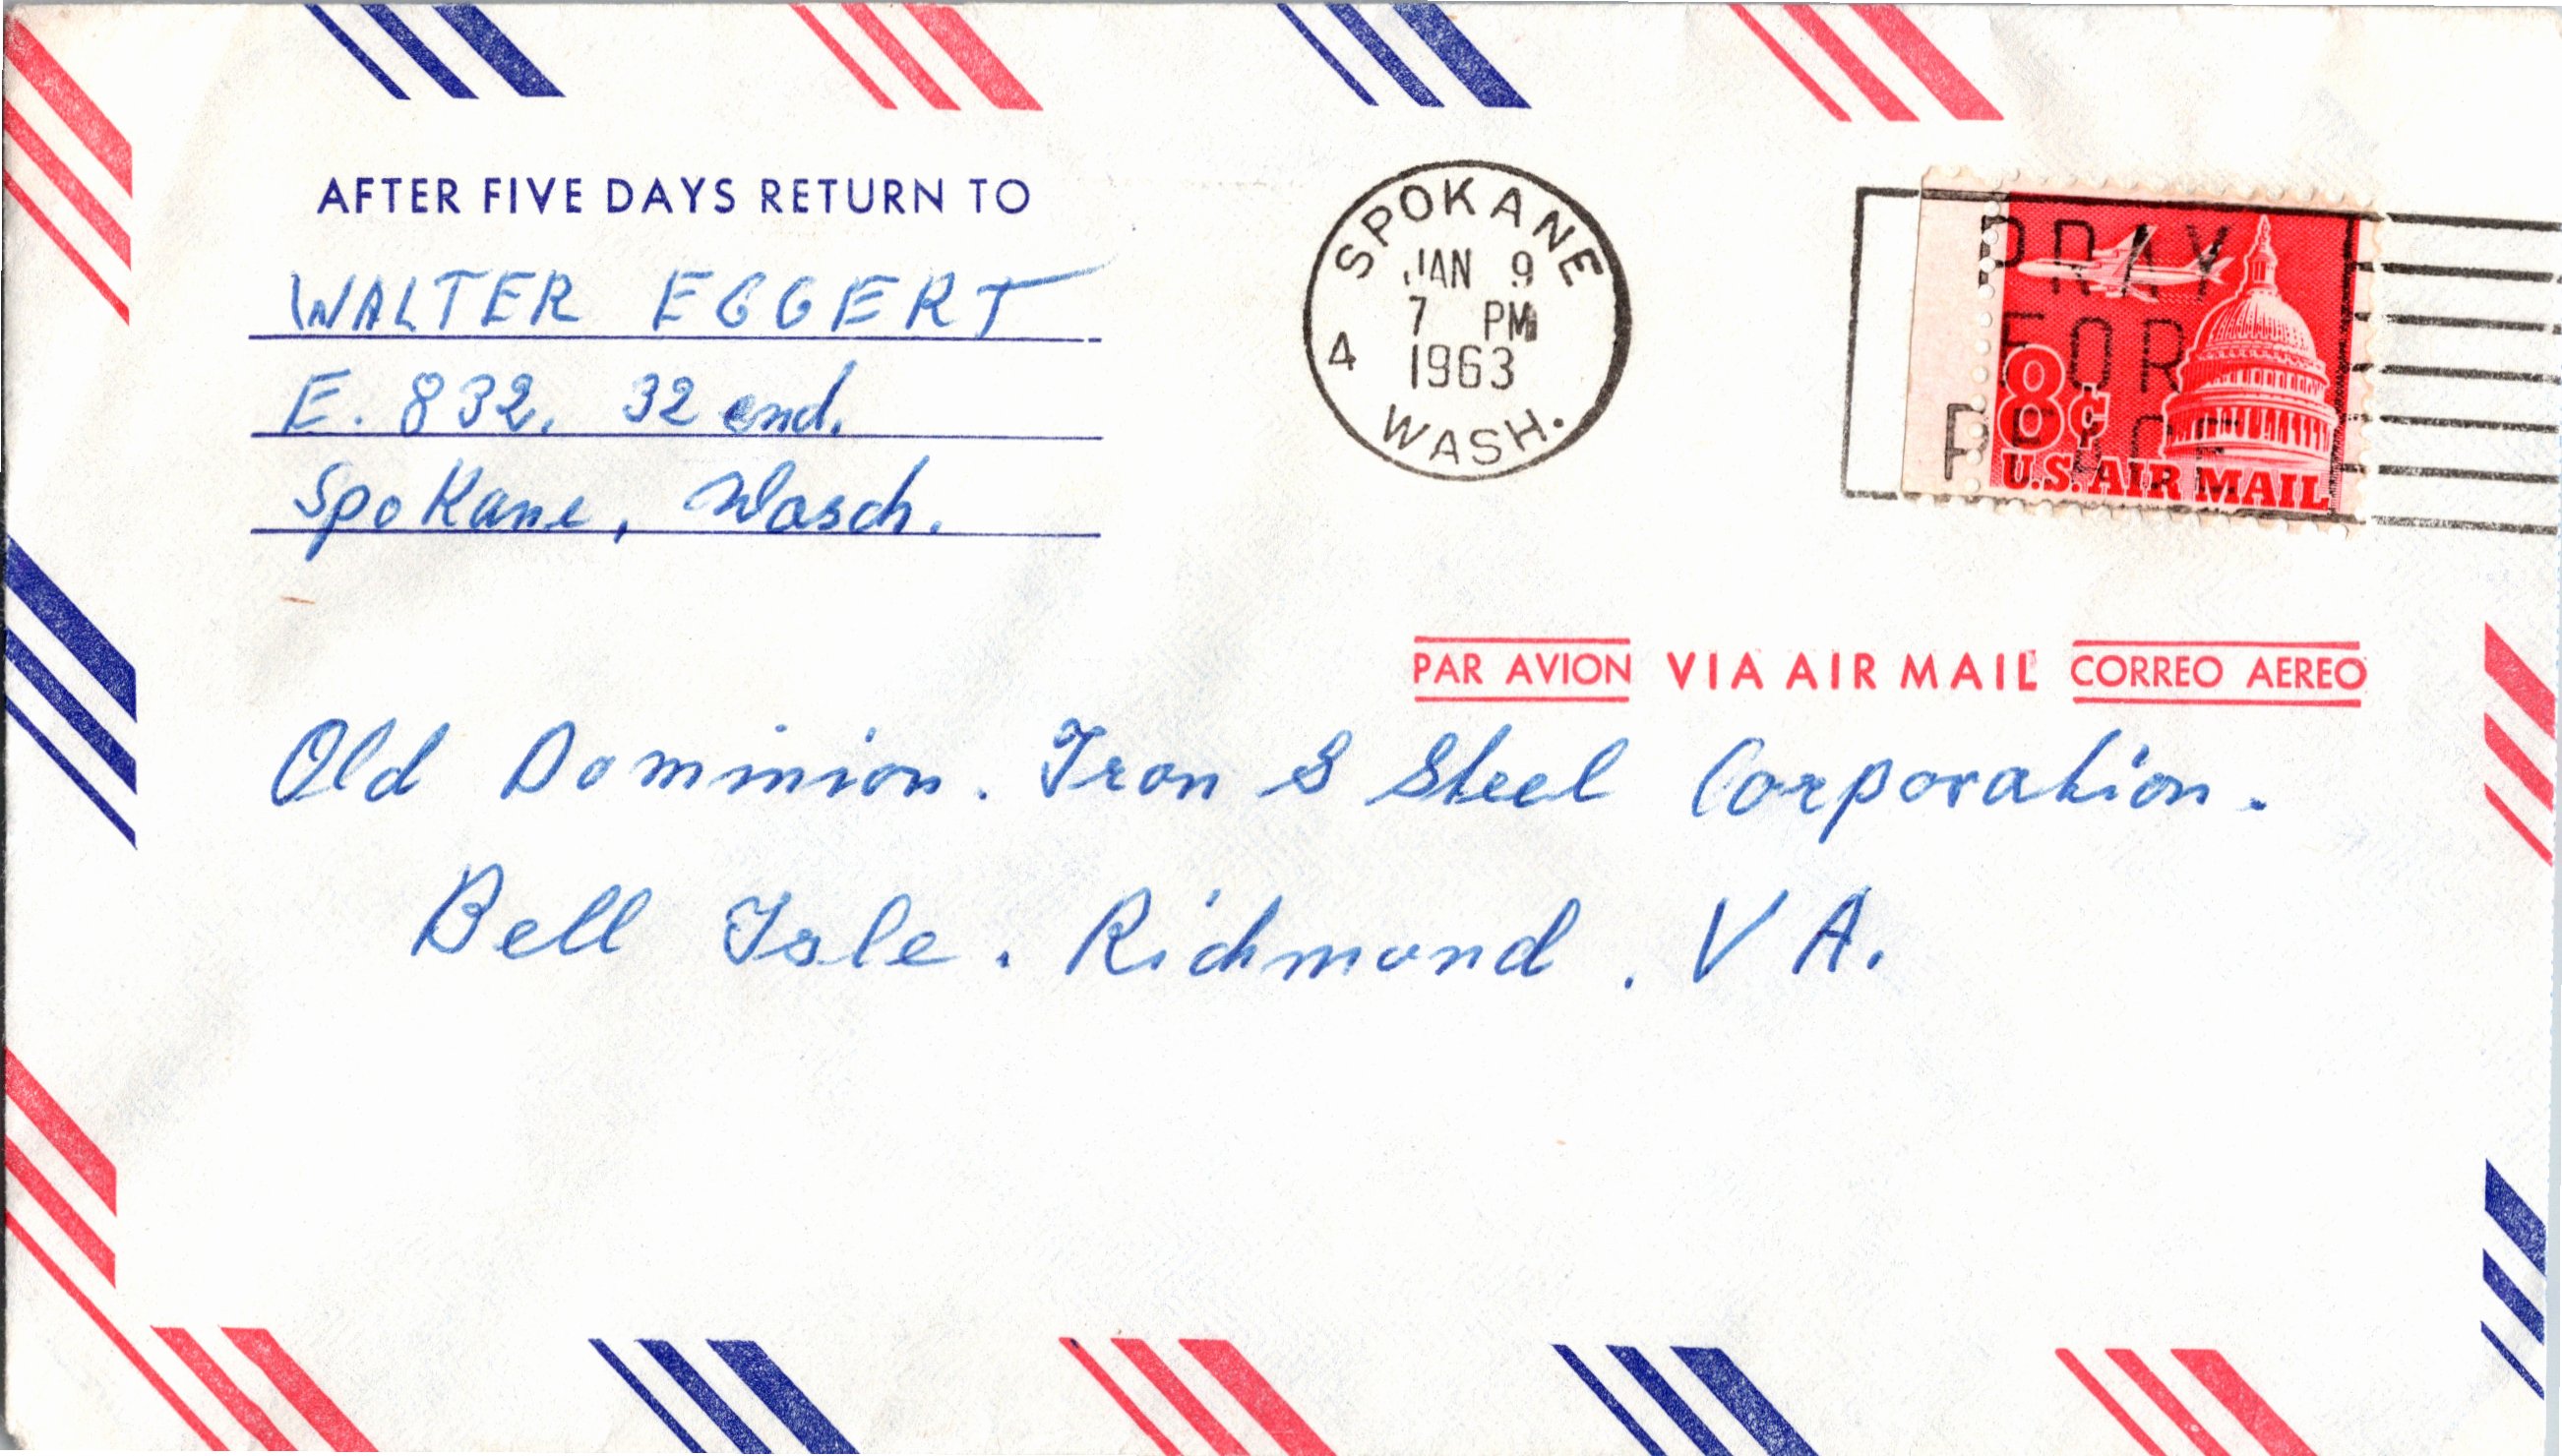 AFTER FIVE DAYS RETURN TO
WALTER EGGERT
E. 832. 32 end.
Spokane, Wasch.
SPOKANE
JAN 9
7 PM
4 1963
WASH.
PRAY
FOR
PEACE
8¢
U.S. AIR MAIL
PAR AVION VIA AIR MAIL CORREO AEREO
Old Dominion. Iron & Steel Corporation.
Bell Isle. Richmond. VA.